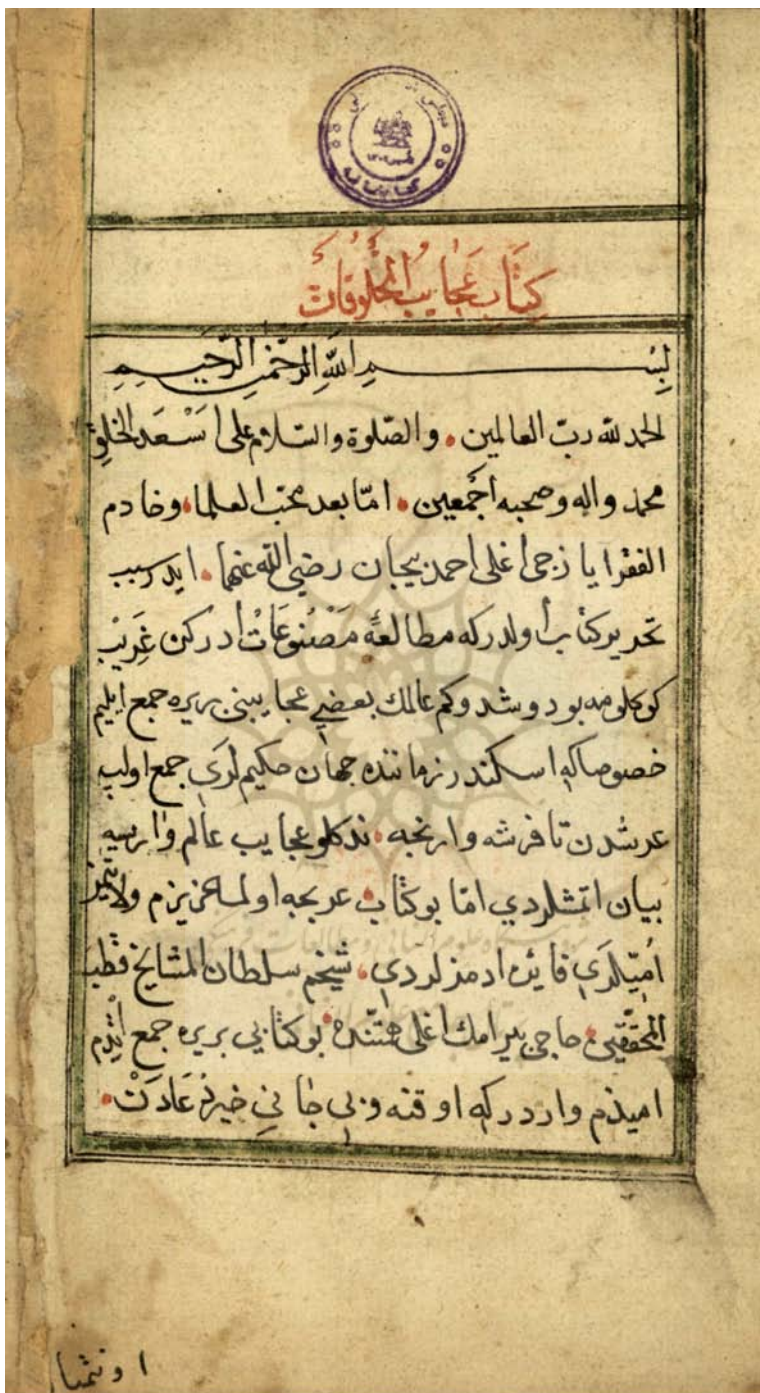 كتاب عجايب المخلوقات
بسم الله الرحمن الرحيم
الحمد لله رب العالمين . والصلوة والسلام على اسعد الخلق
محمد واله وصحبه اجمعين . امّا بعد محب العلما . وخادم
الفقرا يازجى اغلى احمد بيجان رضى الله عنهما . ايدر سبب
تحرير كتاب اولدر كه مطالعهٔ مَصْنُوعَاتْ ادركن غَرِيبْ
كوكلومه بو دوشدوكم عالمك بعضي عجايبنى بريره جمع ايليم
خصوصا كه اسكندر زماننده جهان حكيملرى جمع اولب
عرشدن تا فرشه وارنجه . نه دكلو عجايب عالم وارسه
بيان اتمشلردي امّا بو كتاب عربجه اولمه عزيزم ولايتمز
اُمّيلرى فايده ادمزلردي . شيخم سلطان المشايخ قطب
المحققين . حاجى بيرامك اغلى همّتنده بو كتابى بريره جمع اتدم
اميذم واردركه اوقنه وبى جانى خيرله
اونثمبا